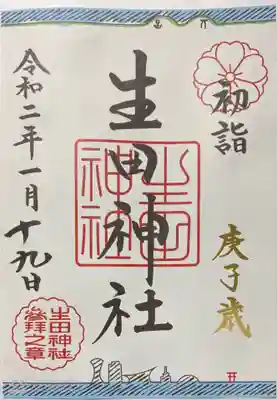 初詣
庚子歳
生田神社
生田神社
令和二年一月十九日
生田神社
参拝之章